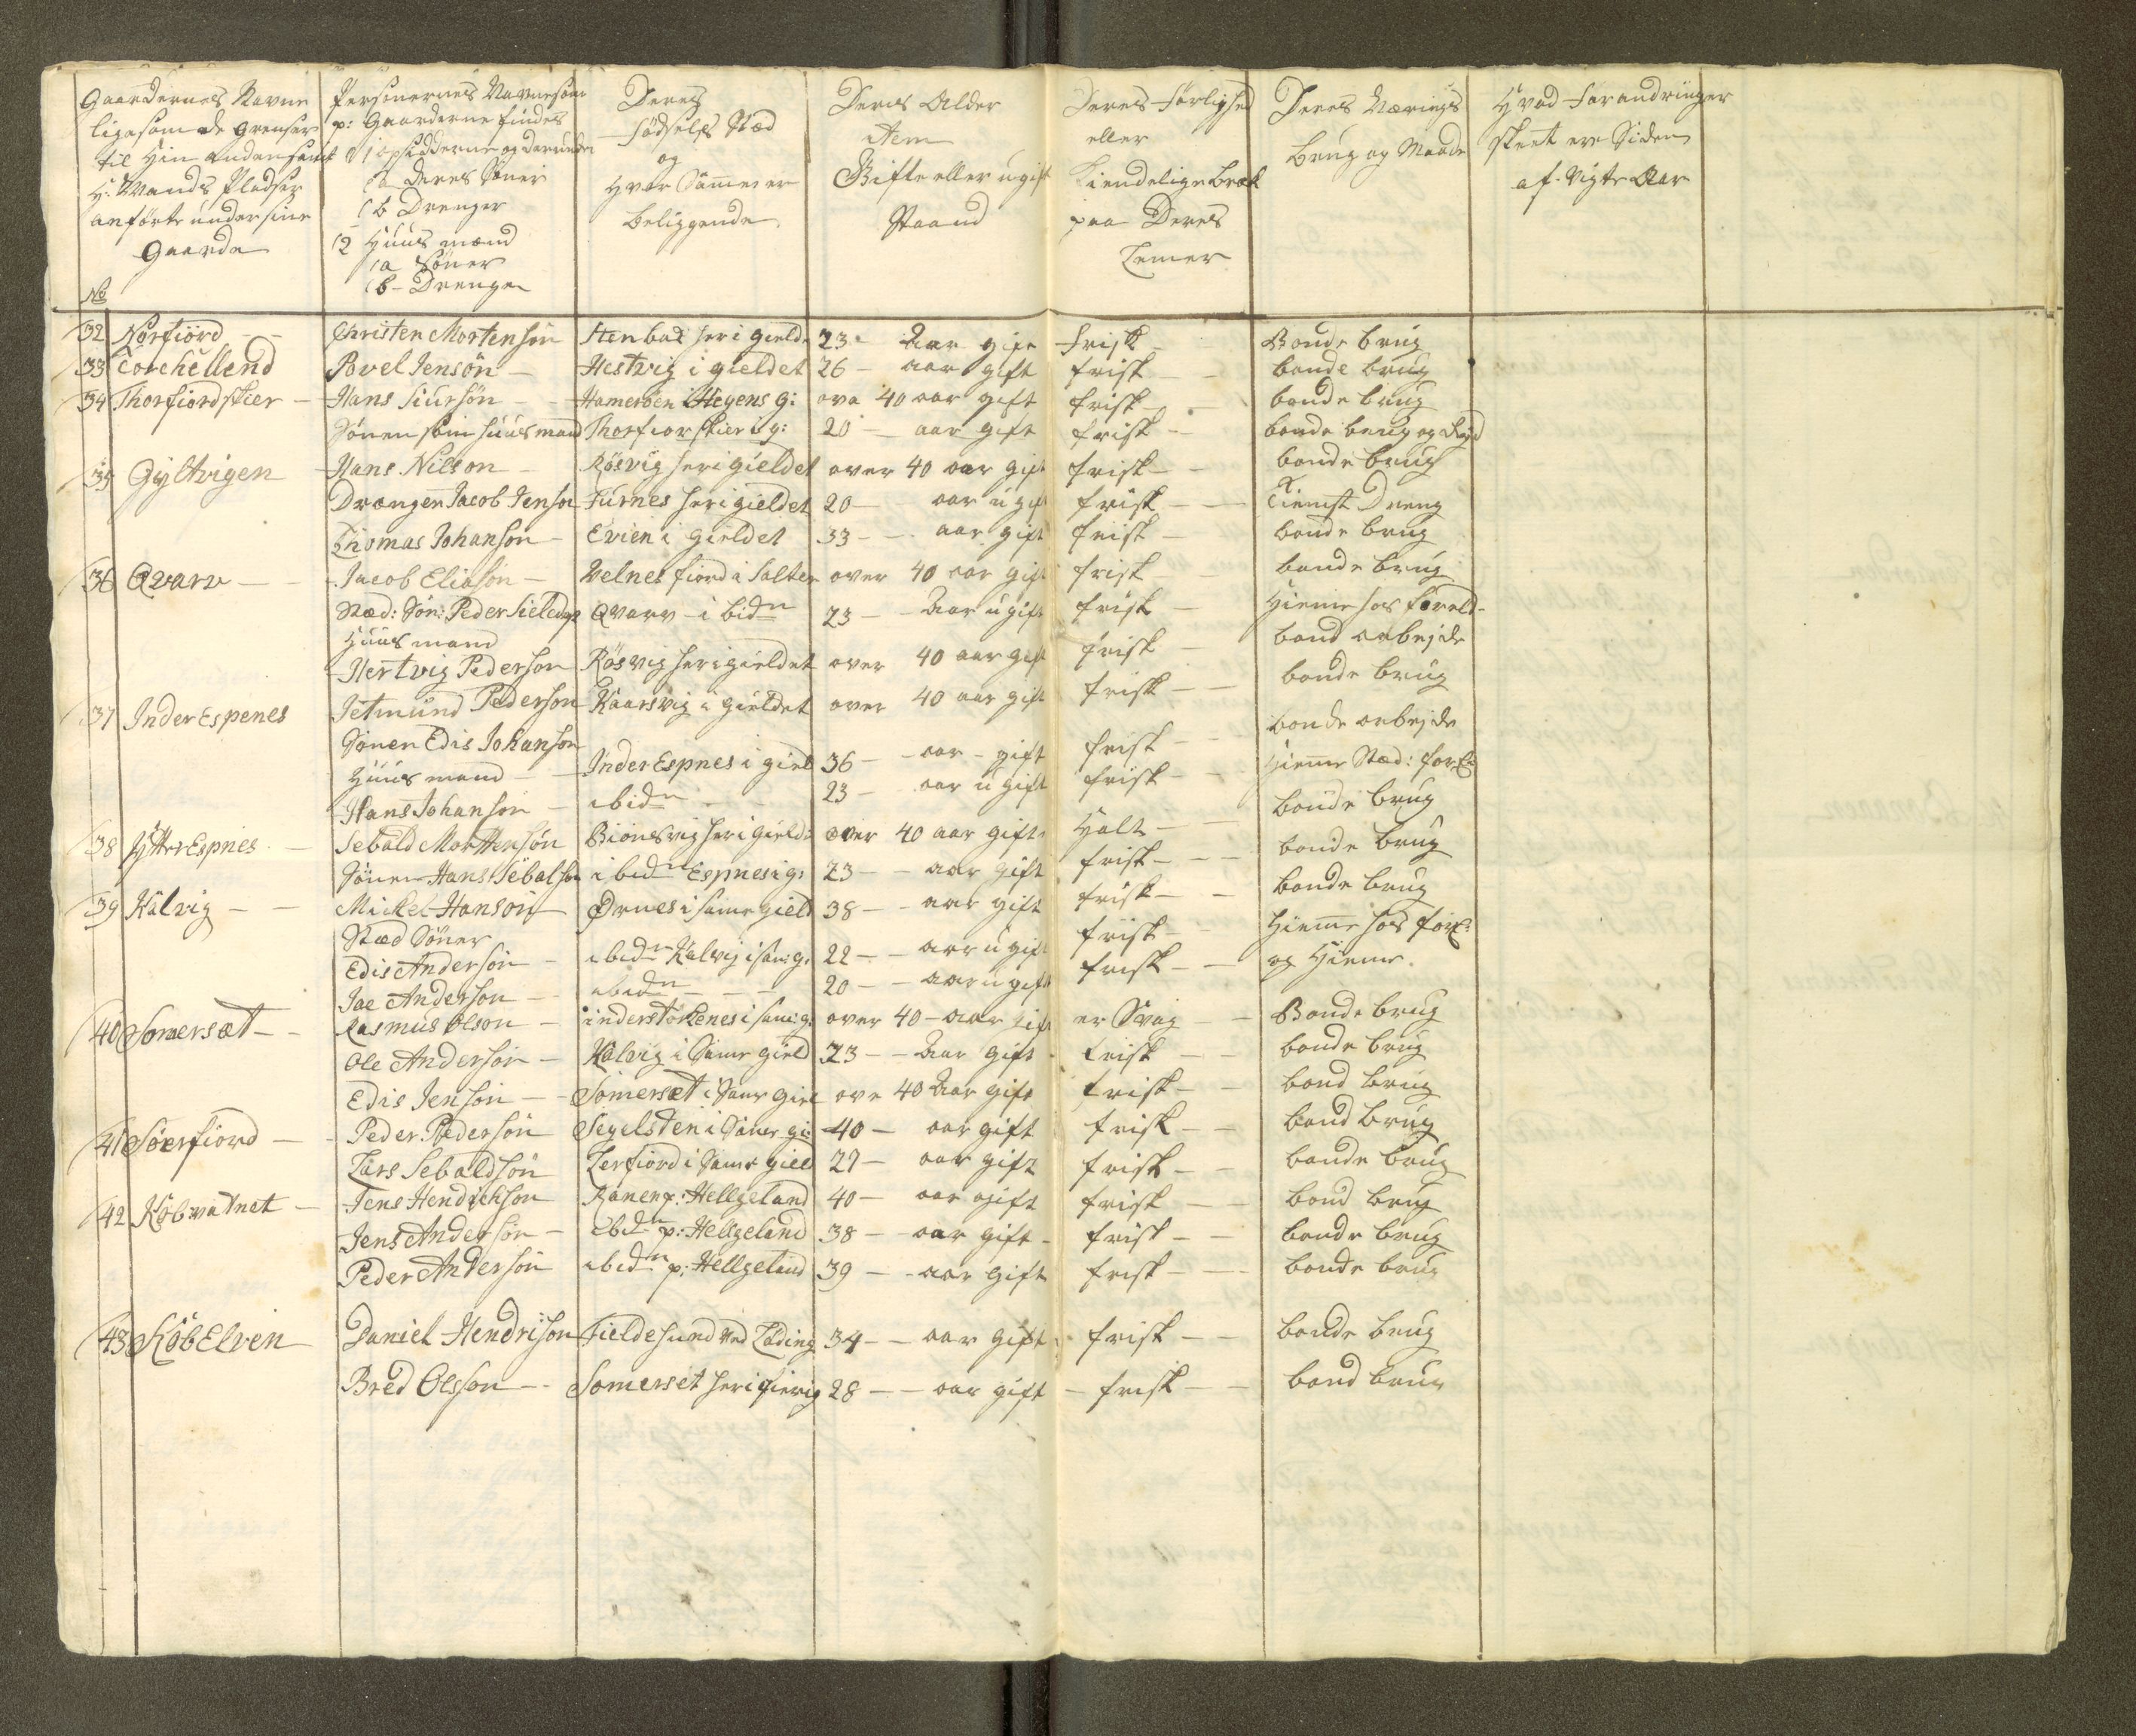 Gaardernes Navne
ligesom de Grenser
til Hin anden samt
H. Mands Pladser
anförte under sine
Gaarde
No
Personernes Navne som
p: Gaarderne findes
(1 opsidderne og derunder
(a Deres Sönner
(b Drenger
(2 Huus mænd
(a Söner
(b Drenge
Deres
födsels Stæd
og
Hvor Samme er
beliggende
Deres Alder
Item
Gifte eller ugift
Stand
Deres förlighed
eller
Kiendelige bræk
paa Deres
Lemer
Deres Nærings
brug og Maade
Hvad forandringer
skeet ere Siden
af-vigte Aar
32 Nörfiord Christen Mortensön Stenbae her i gield 23 Aar gift frisk Bonde brug
33 Torchellend Povel Jensön Hestvig i gieldet 26 aar gift frisk bonde brug
34 Thorfiordskier Hans Siursön Hameröen i Stegens g: ova 40 aar gift frisk bonde brug
Sönen som huusmand Thorfiorskier i g: 20 aar gift frisk bonde brug og
35 Gyltvigen Hans Nilson Rösvig her i gieldet over 40 aar gift frisk bonde brug
Drængen Jacob Jenson Furnes her i gieldet 20 aar ugift frisk Tienist Dreng
Thomas Johanson Evien i gieldet 33 aar gift frisk bonde brug
36 Qvarv Jacob Eliasön Velnes fiord i Salten over 40 aar gift frisk bonde brug
Stæd: Sön: Peder Qvarv i bidn 23 Aar ugift frisk Hieme hos foreld
Huusmand
Hertvig Pederson Rösvig her i gieldet over 40 aar gift frisk bond arbejde
37 Inder Espenes Jetmund Pederson Kaarsvig i gieldet over 40 aar gift frisk bonde brug
Sönen Edis Johanson
Huusmand Inder Espnes i giel 36 aar gift frisk bonde arbejde
Hans Johansön ibidn 23 aar ugift frisk Hieme Stæd: for
38 Ytter Espnes Sebald Morttensön Biönsvig her i gield: over 40 aar gift Halt bonde brug
Sönen Hans Sebalson i bidn Espnes i g: 23 aar gift frisk bonde brug
39 Kalvig Mickel Hansön Ørnes i same gield 38 aar gift frisk bonde brug
Stæd Söner
Edis Andersön ibidn Kalvig i sam: g. 22 aar ugift frisk hieme hos for
Jae Anderson ibidn 20 aar ugift frisk og Hieme
40 Somersæt Rasmus Olson inderstörkenes i sam: g: over 40 aar gift er Svag Bonde brug
Ole Andersön Kalvig i Same gield 23 Aar gift frisk bonde brug
Edis Jensön Somerset i Same giel ove 40 Aar gift frisk bond brug
41 Söerfiord Peder Pedersön Segelsten i Same gi: 40 aar gift frisk bond brug
Lars Sebaldsön Lerfiord i Same giel 29 aar gift frisk bonde brug
42 Kobvatnet Jens Hendrichson Ranen p: Hellgeland 40 aar gift frisk bond brug
Jens Andersön ibidn p: Hellgeland 38 aar gift frisk bonde brug
Peder Andersön ibidn p: Hellgeland 39 aar gift frisk bonde brug
43 KobElven Daniel Hendrison Fieldesund ved Löding 34 aar gift frisk bonde brug
Bred Olsson Somerset her i 28 aar gift frisk bond brug